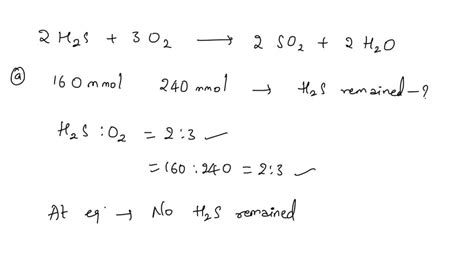 2 H₂S + 3 O₂ ⟶ 2 SO₂ + 2 H₂O
ⓐ 160 mmol 240 mmol → H₂S remained - ?
H₂S : O₂ = 2:3 ✓
= 160 : 240 = 2:3 ✓
At eqⁿ → No H₂S remained